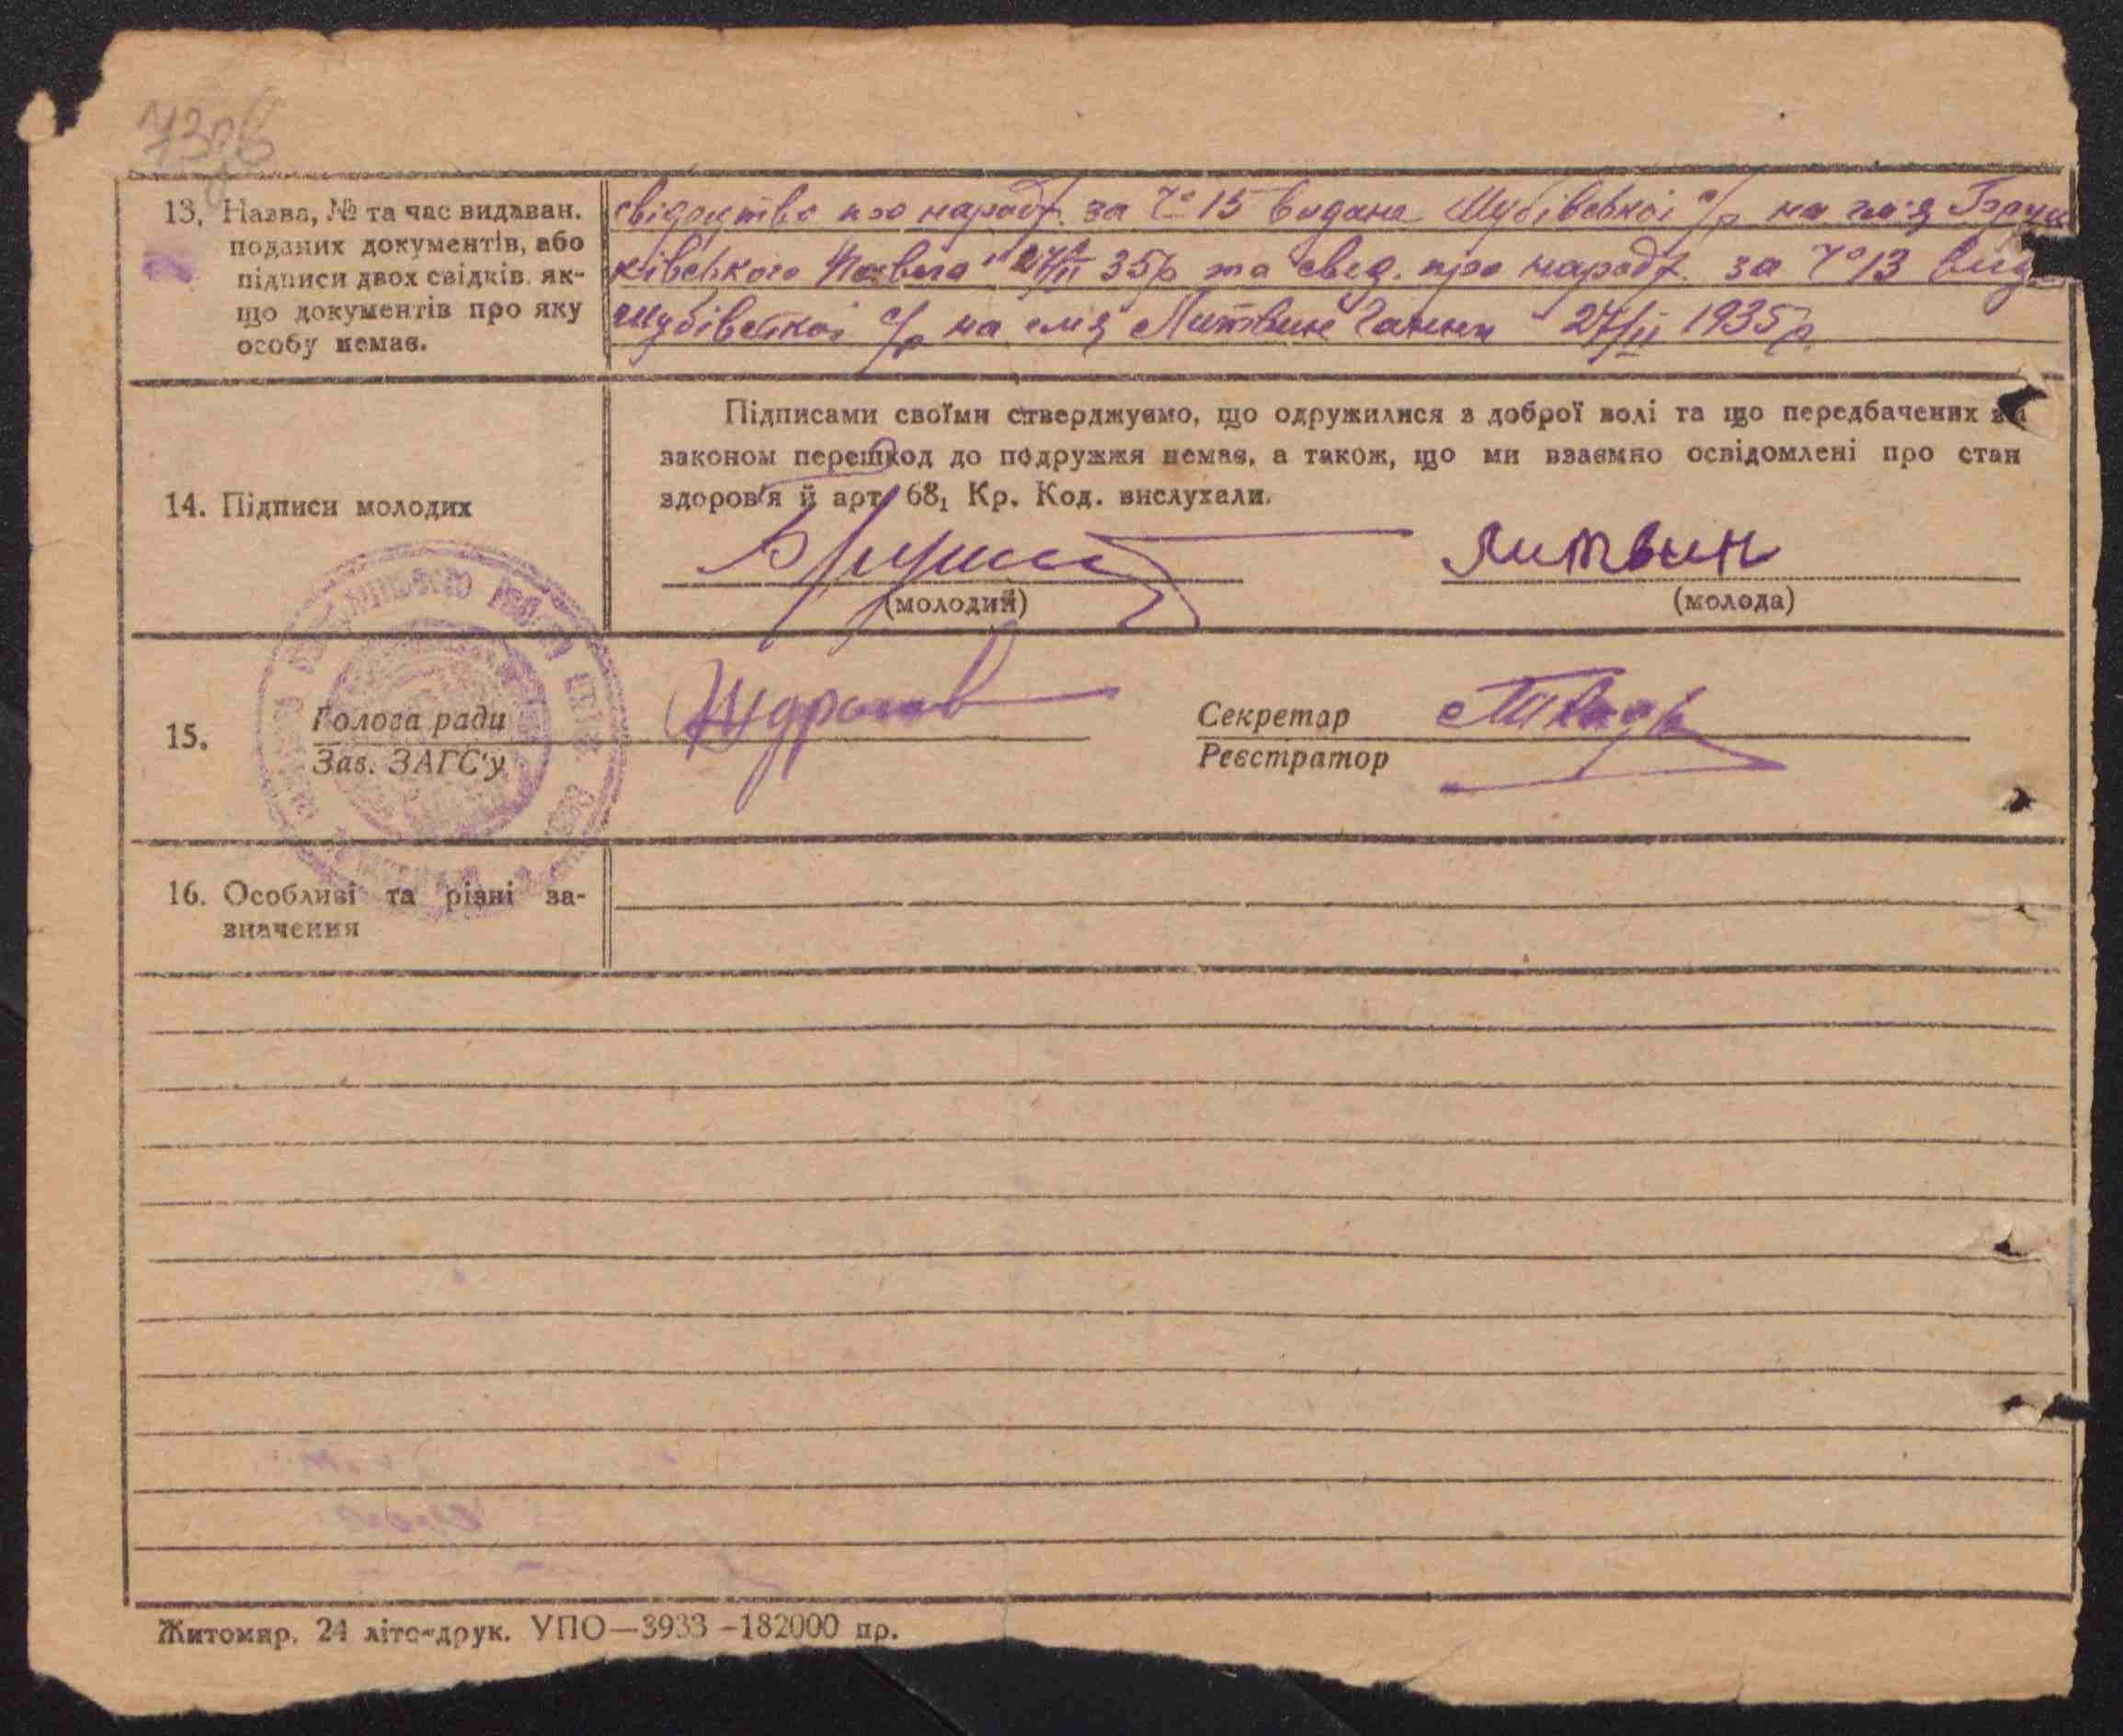 13. Назва, № та час видаван.
поданих документів, або
підписи двох свідків, як-
що документів про яку
особу немає.
свідоцтво про народж. за № 15 видане Шубівської с/р на ім'я
ківського Павла 27/II 35р та свид. про народж. за № 13
Шубівської с/р на імя Литвин Ганни 27/II 1935р.
14. Підписи молодих
Підписами своїми стверджуємо, що одружилися з доброї волі та що передбачених
законом перешкод до подружжя немає, а також, що ми взаємно освідомлені про стан
здоров'я й арт. 68₁ Кр. Код. вислухали.
Литвин
(молодий) (молода)
15. Голова ради Секретар
Зав. ЗАГС'у Реєстратор
16. Особливі та різні за-
значення
Житомир. 24 літо-друк. УПО—3933—182000 пр.